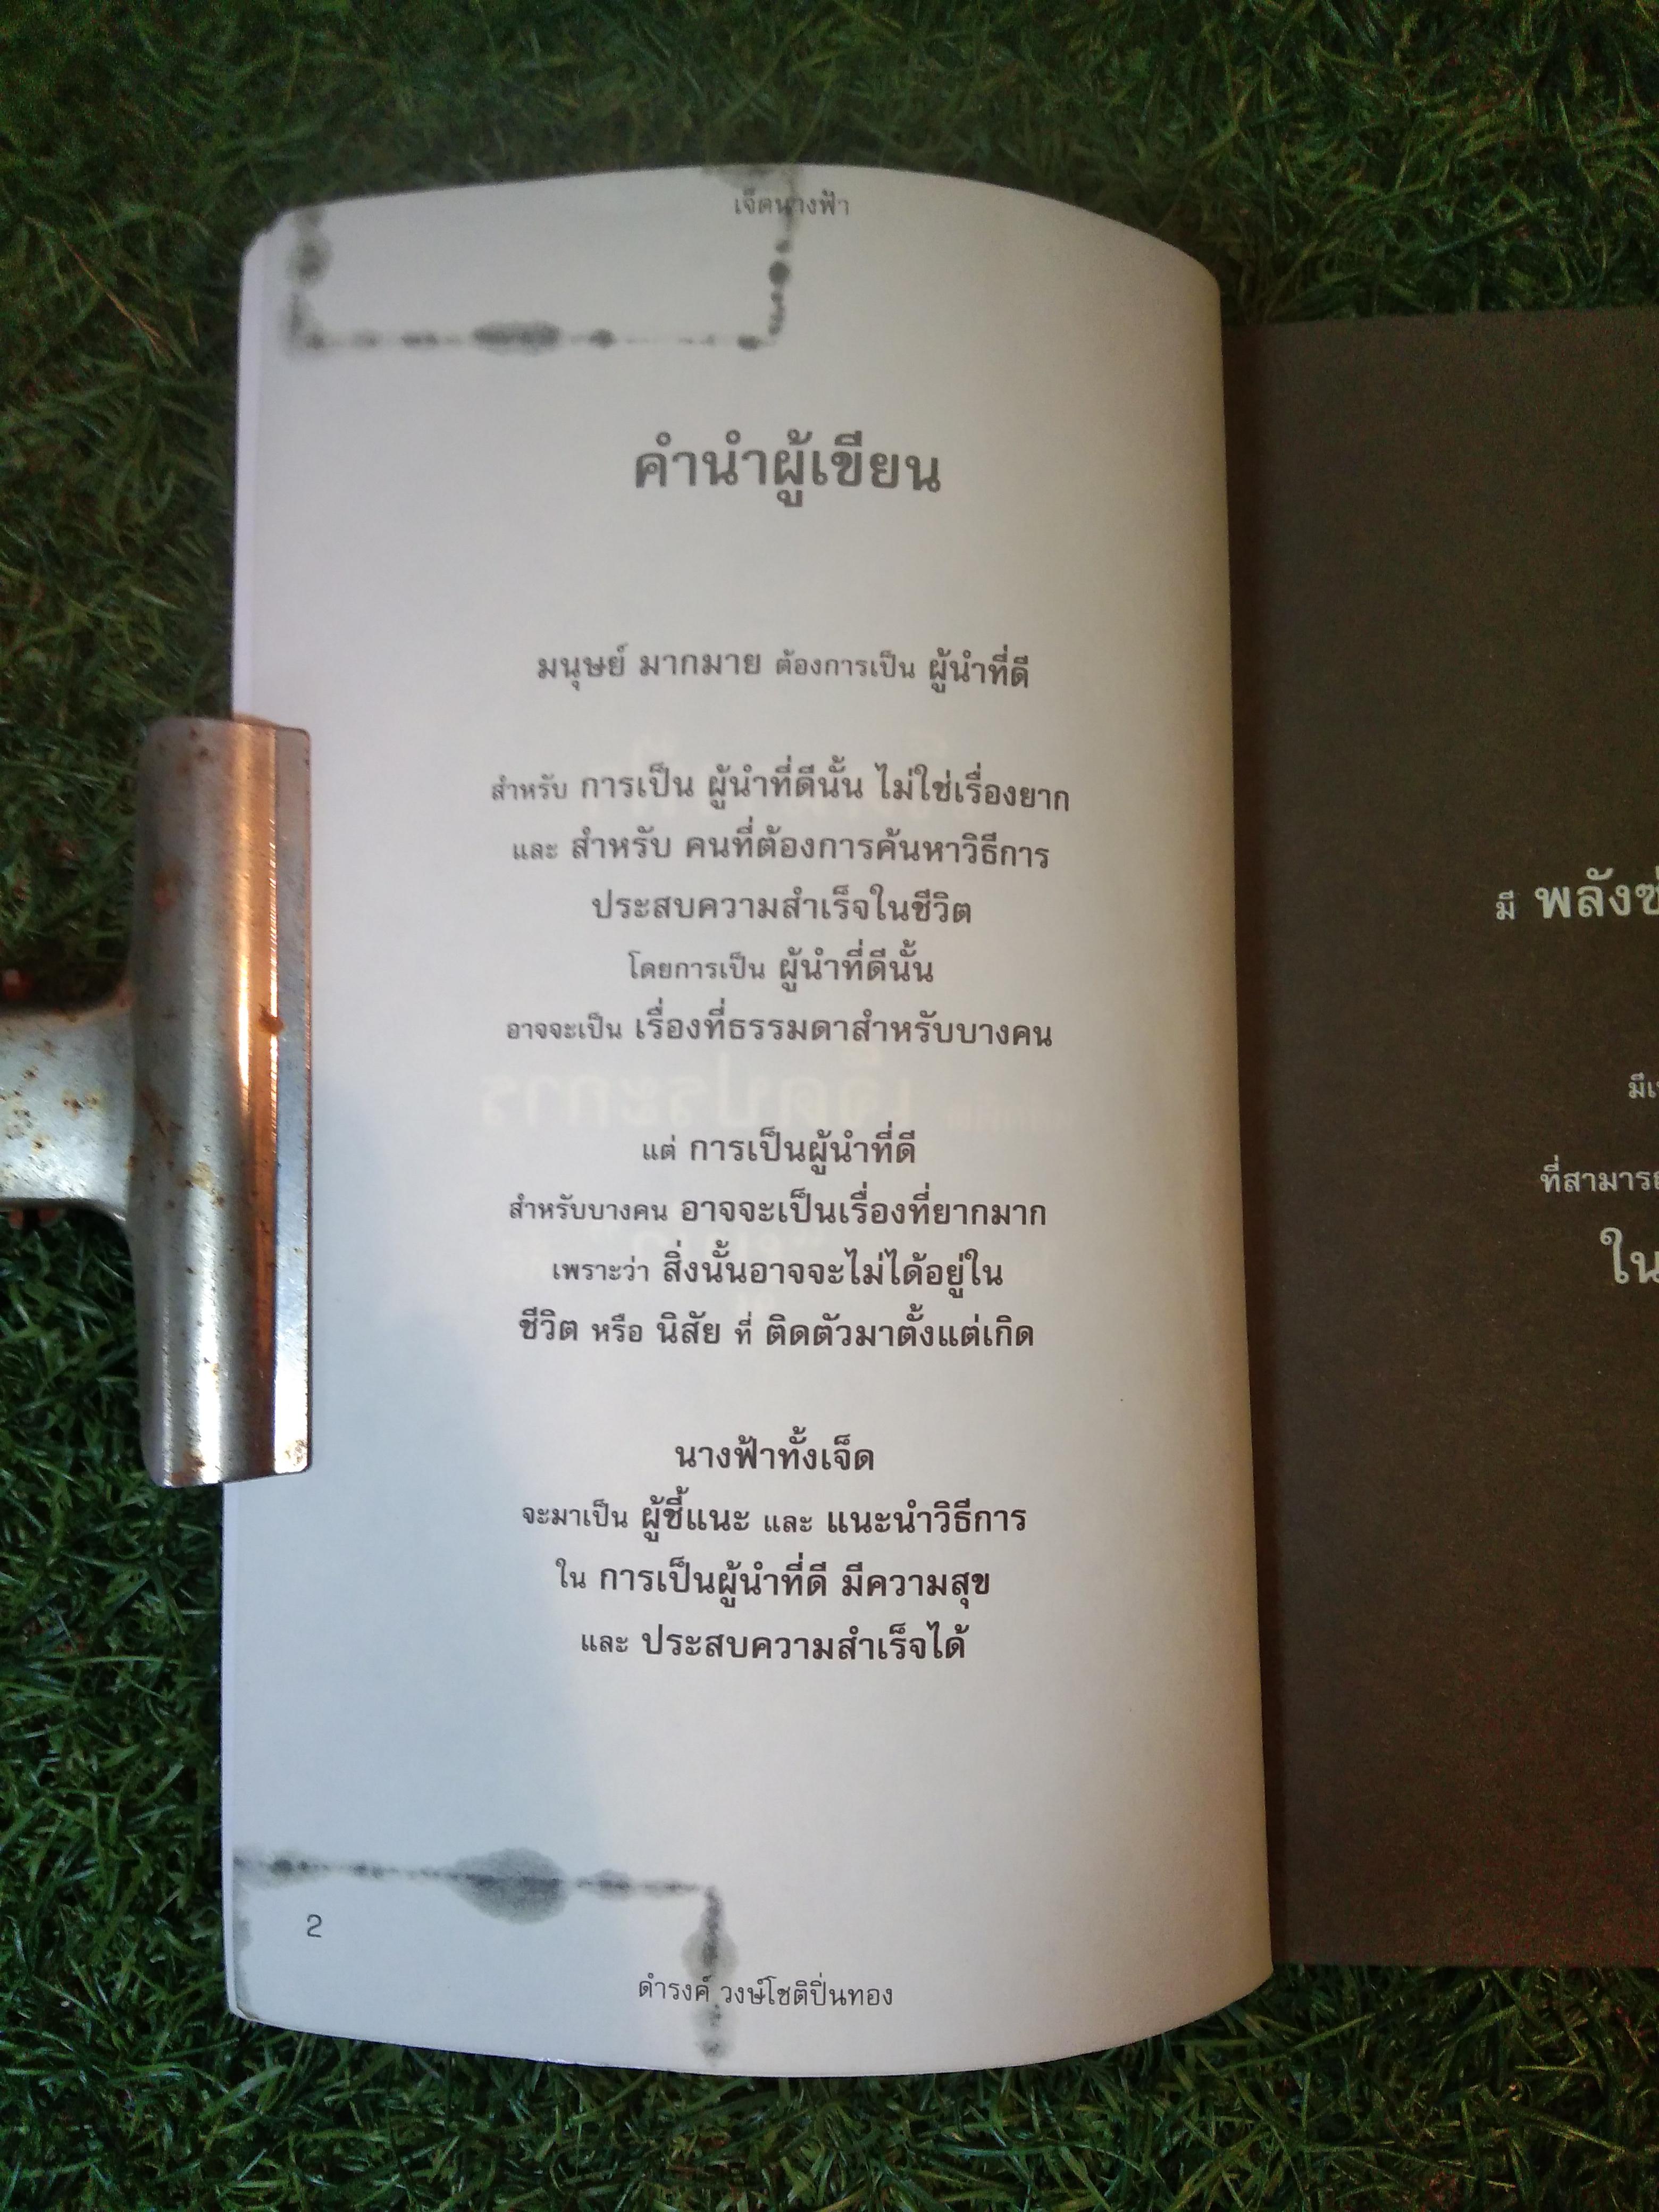 เจ็ดนางฟ้า
คำนำผู้เขียน
มนุษย์ มากมาย ต้องการเป็น ผู้นำที่ดี
สำหรับ การเป็น ผู้นำที่ดีนั้น ไม่ใช่เรื่องยาก
และ สำหรับ คนที่ต้องการค้นหาวิธีการ
ประสบความสำเร็จในชีวิต
โดยการเป็น ผู้นำที่ดีนั้น
อาจจะเป็น เรื่องที่ธรรมดาสำหรับบางคน
แต่ การเป็นผู้นำที่ดี
สำหรับบางคน อาจจะเป็นเรื่องที่ยากมาก
เพราะว่า สิ่งนั้นอาจจะไม่ได้อยู่ใน
ชีวิต หรือ นิสัย ที่ ติดตัวมาตั้งแต่เกิด
นางฟ้าทั้งเจ็ด
จะมาเป็น ผู้ชี้แนะ และ แนะนำวิธีการ
ใน การเป็นผู้นำที่ดี มีความสุข
และ ประสบความสำเร็จได้
2
ดำรงค์ วงษ์โชติปิ่นทอง
มี พลัง
ที่สามารถ
ใน